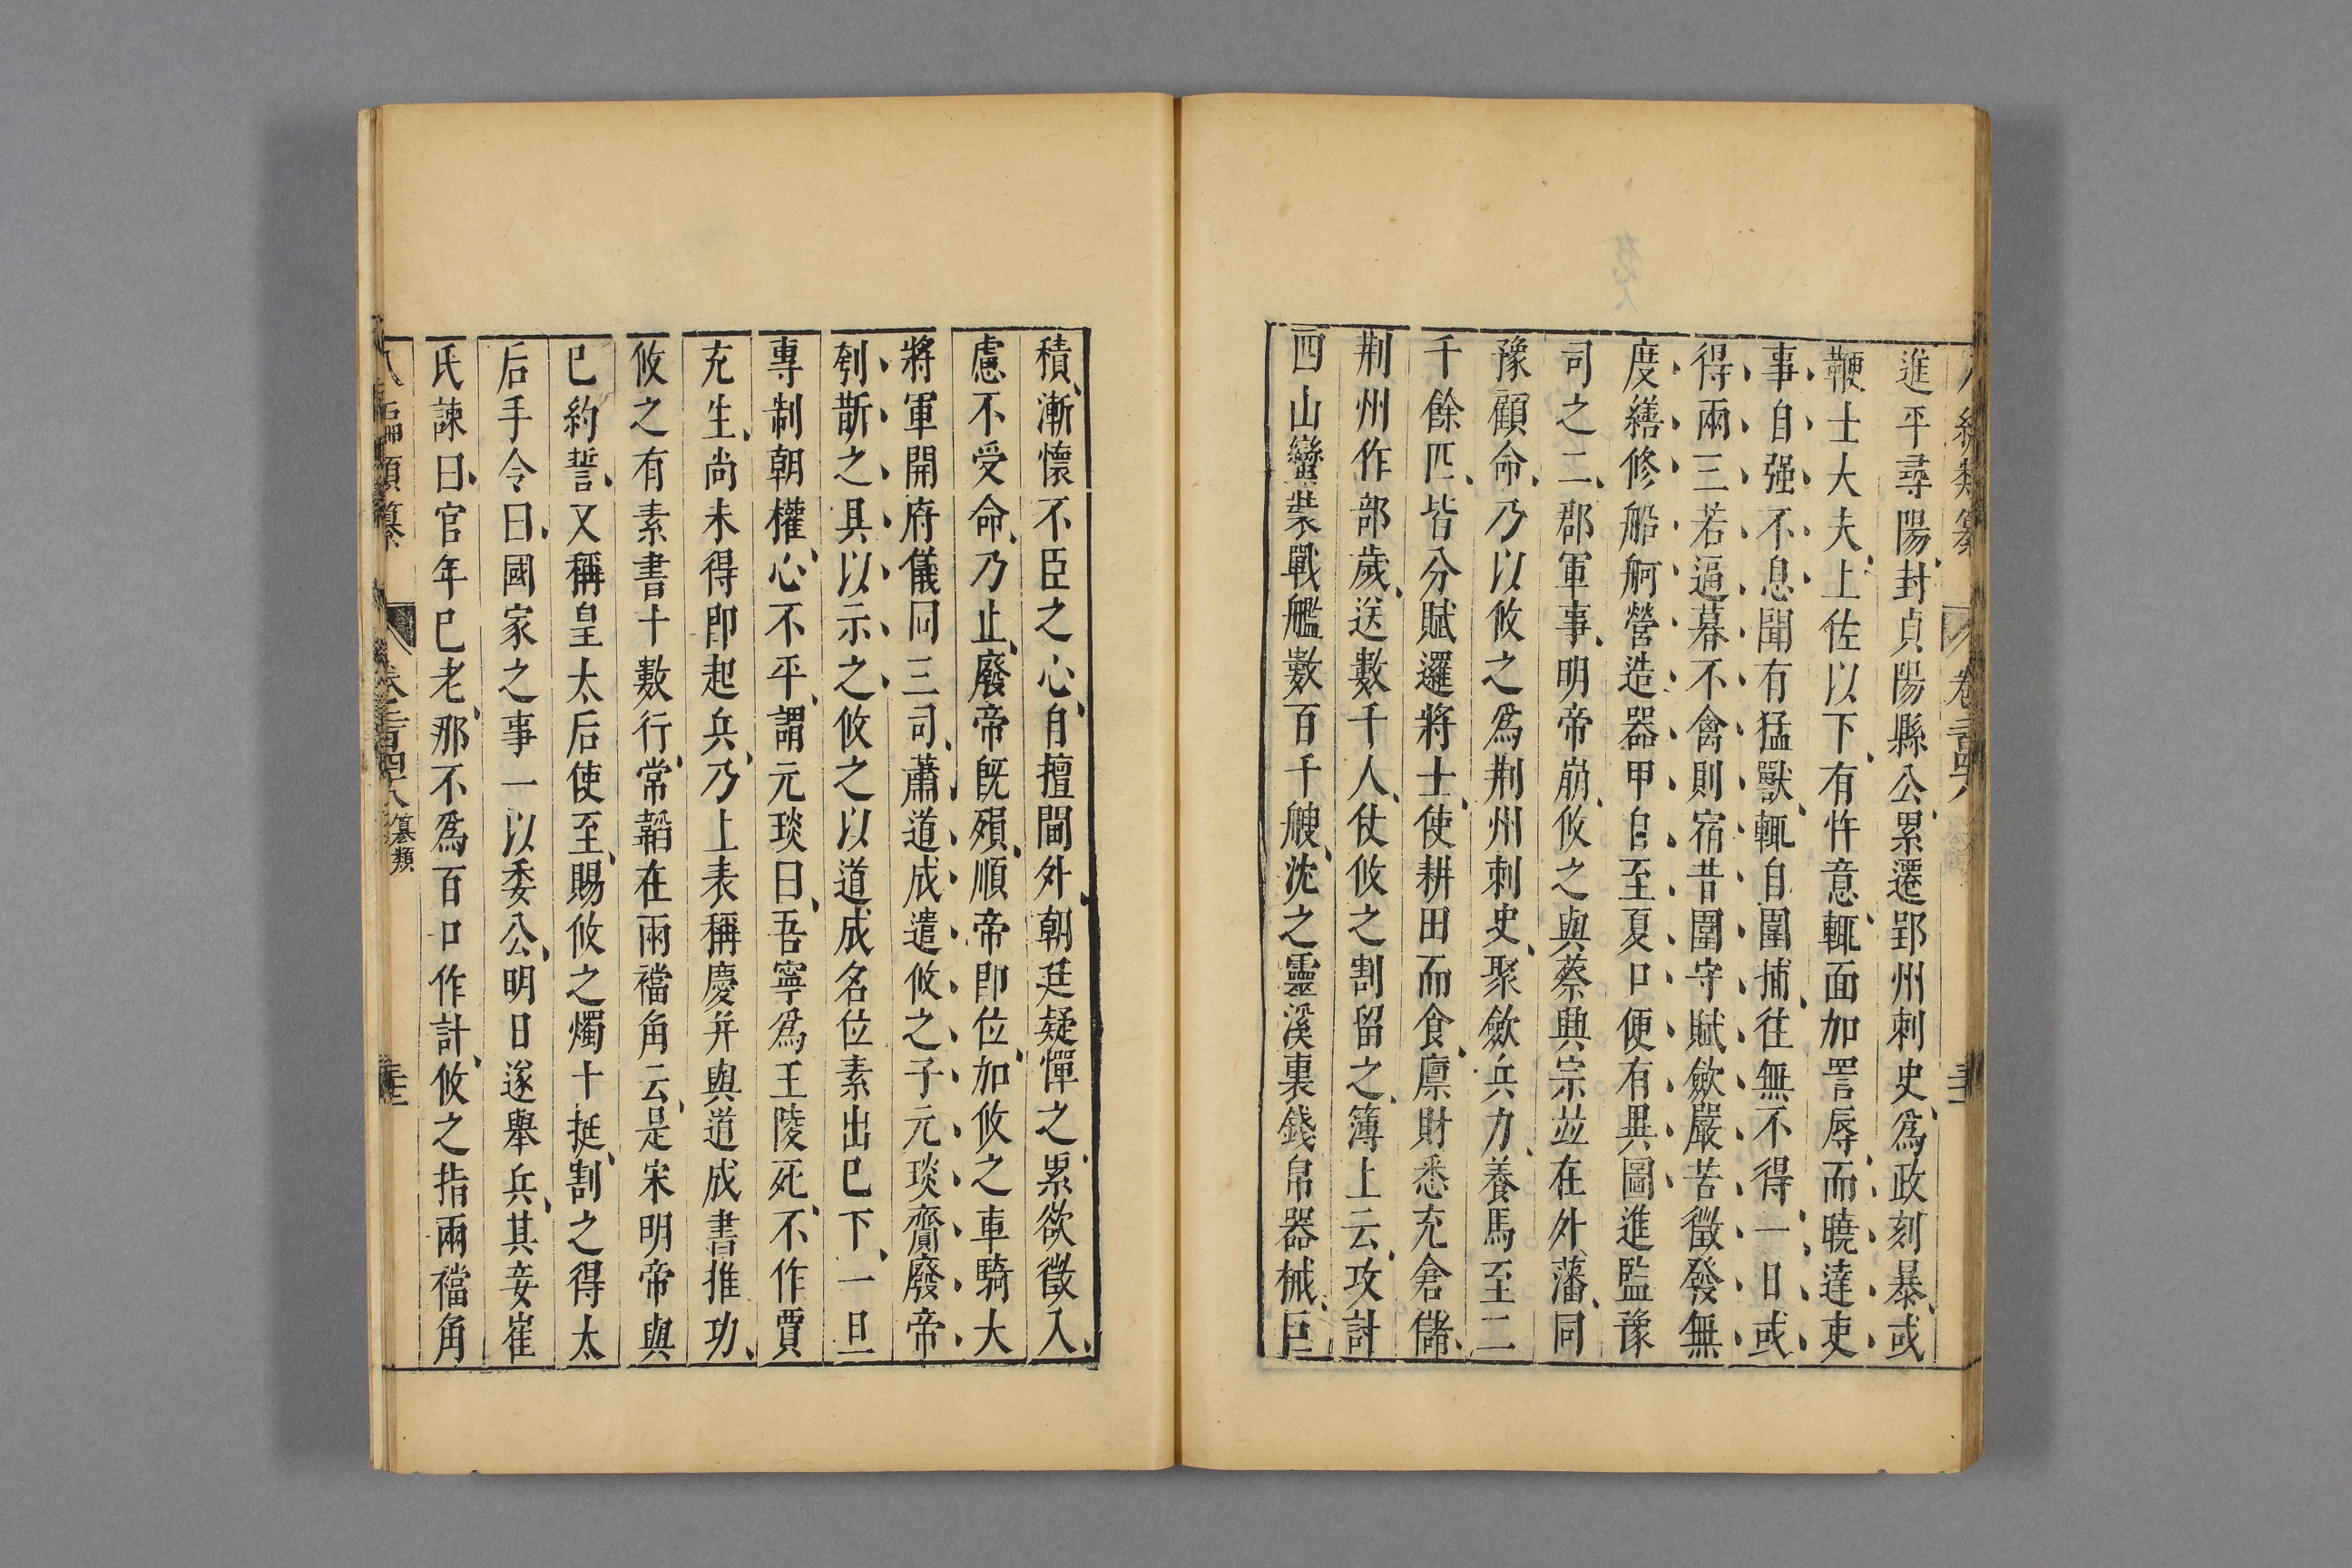 進平尋陽封貞陽縣公累遷郢州刺史爲政刻暴或
鞭士大夫上佐以下有忤意輒面加詈辱而曉達吏
事自强不息聞有猛獸輒自圍捕往無不得一日或
得兩三若逼暮不禽則宿昔圍守賦歛嚴苦徵發無
度繕修船舸營造器甲自至夏口便有異圖進監豫
司之二郡軍事明帝崩攸之與蔡興宗並在外藩同
豫顧命乃以攸之爲荆州刺史聚歛兵力養馬至二
千餘匹皆分賦邏將士使耕田而食廪財悉充倉儲
荆州作部歲送數千人仗攸之割留之簿上云攻討
四山蠻裝戰艦數百千艘沈之靈溪裏錢帛器械巨
積漸懷不臣之心自擅閫外朝廷疑憚之累欲徵入
慮不受命乃止廢帝旣殞順帝卽位加攸之車騎大
將軍開府儀同三司蕭道成遣攸之子元琰齎廢帝
刳斮之具以示之攸之以道成名位素出巳下一旦
專制朝權心不平謂元琰曰吾寧爲王陵死不作賈
充生尚未得卽起兵乃上表稱慶并與道成書推功
攸之有素書十數行常韜在兩襠角云是宋明帝與
巳約誓又稱皇太后使至賜攸之燭十挺割之得太
后手令曰國家之事一以委公明日遂舉兵其妾崔
氏諫曰官年巳老那不爲百口作計攸之指兩襠角
八編類纂 卷之二百四十八 纂類